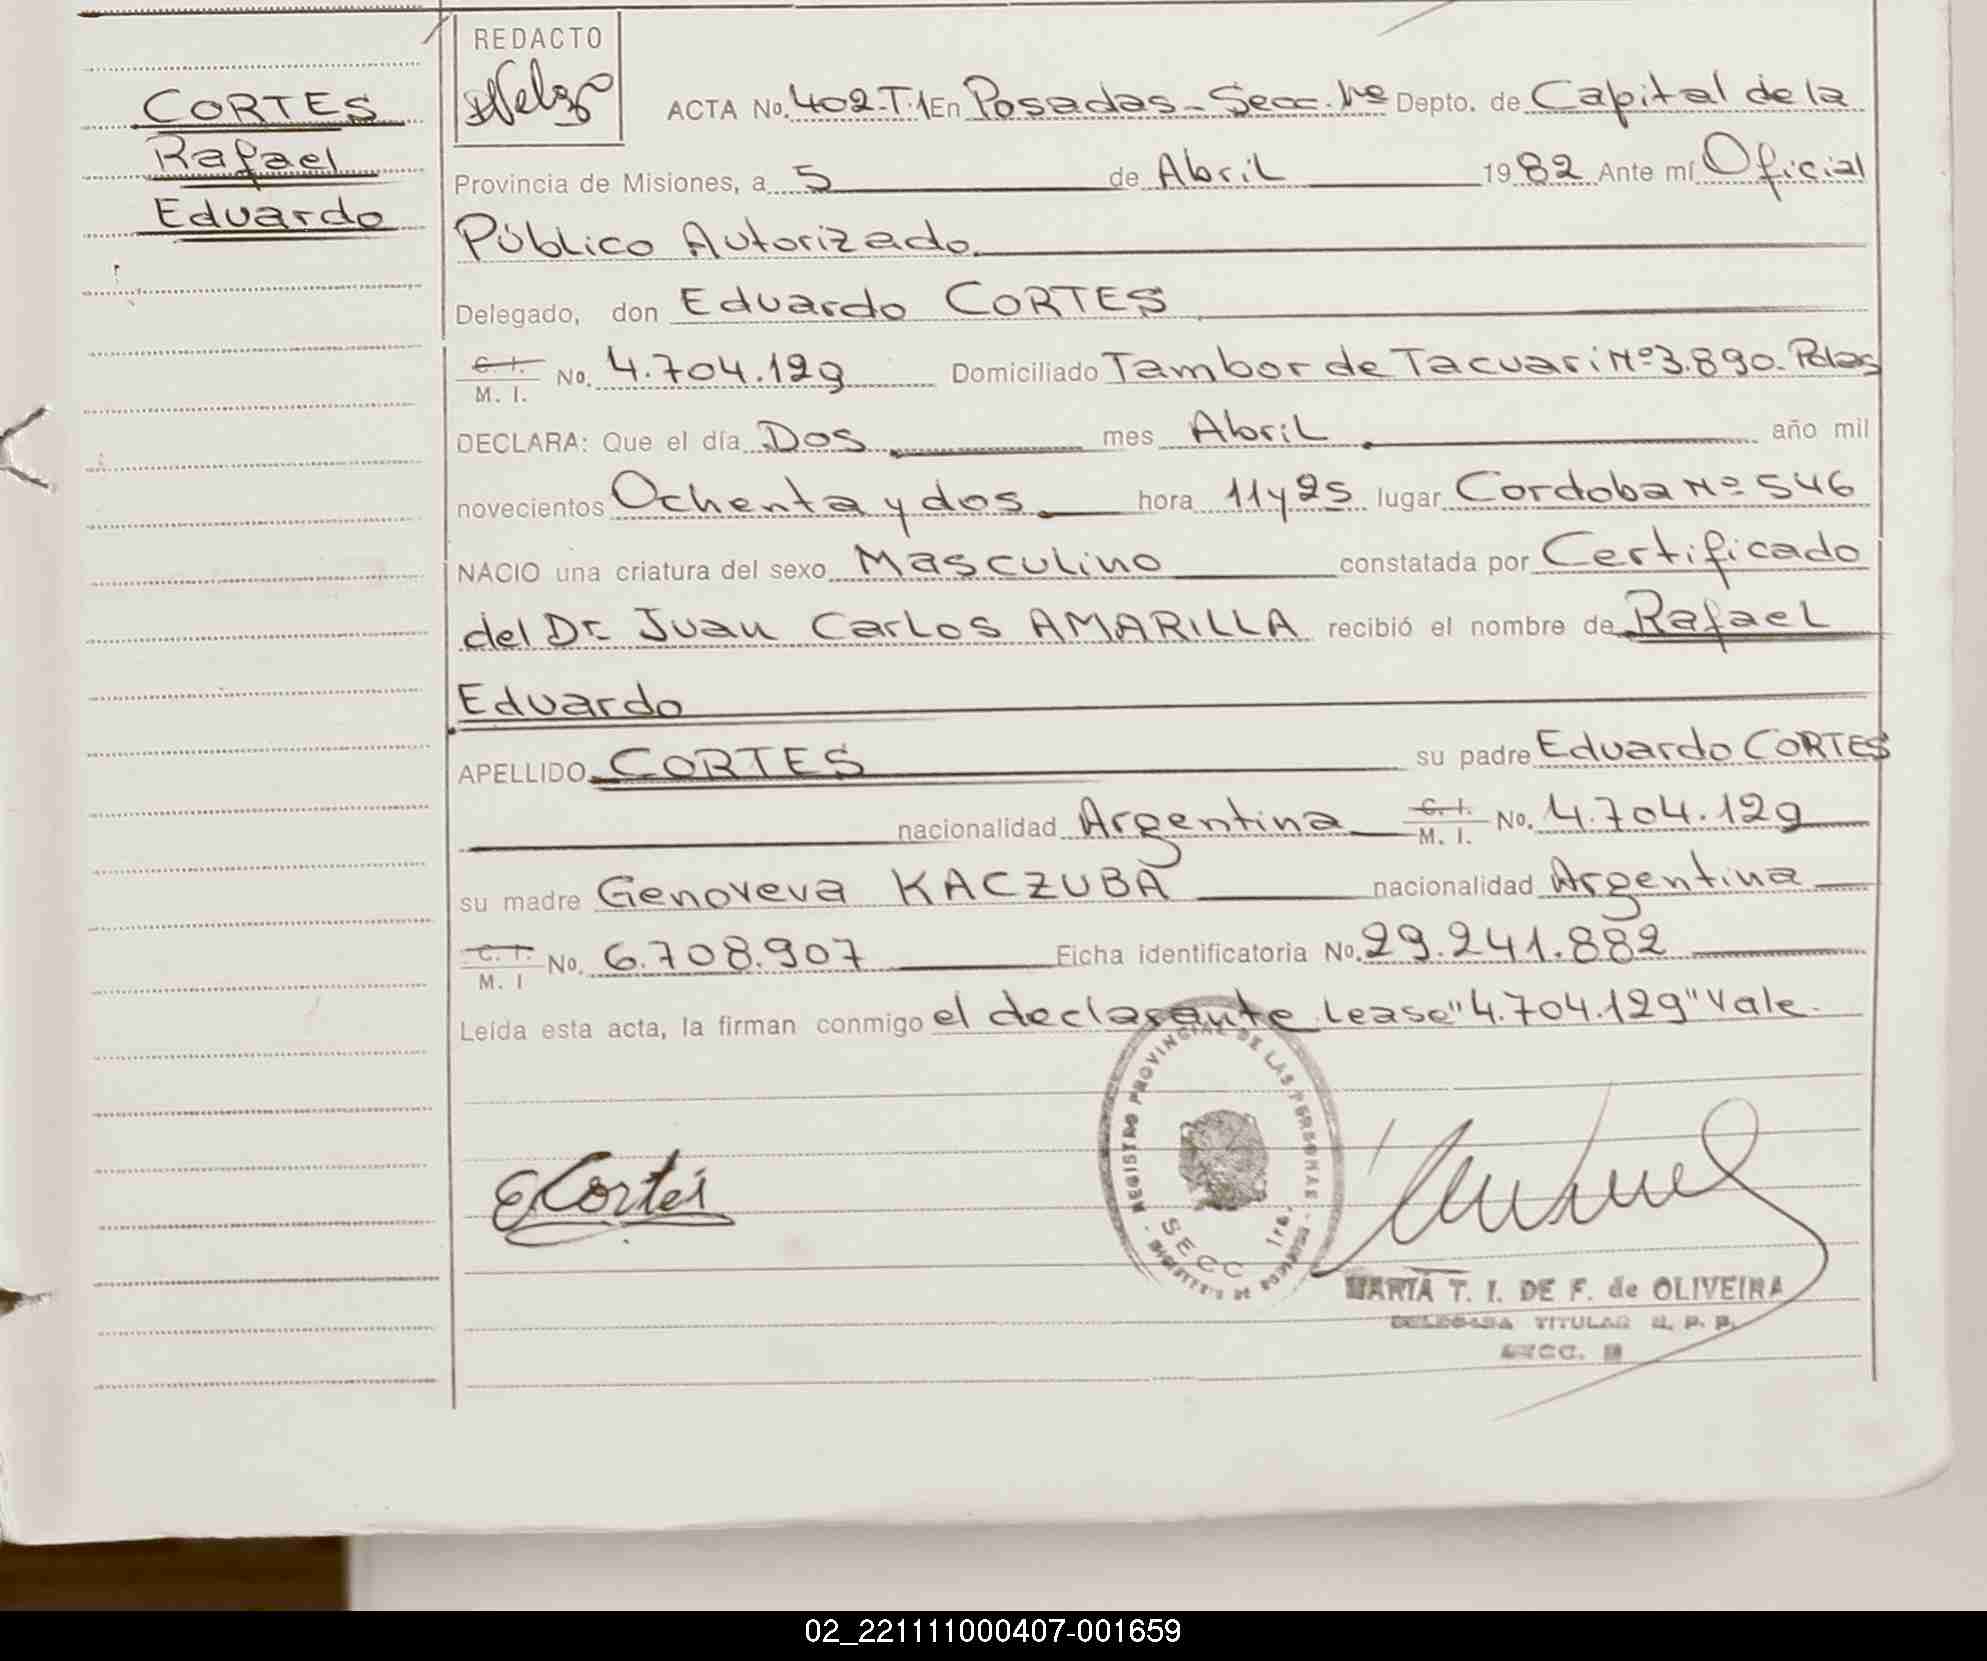 CORTES
Rafael
Eduardo
REDACTO
ACTA No. 402.T.1 En Posadas - Secc. 1º Depto. de Capital de la
Provincia de Misiones, a 5 de Abril 1982 Ante mí Oficial
Público Autorizado.
Delegado, don Eduardo CORTES
C. I.
M. I. No. 4.704.129 Domiciliado Tambor de Tacuari Nº 3.890. Pdas
DECLARA: Que el día Dos mes Abril año mil
novecientos Ochenta y dos hora 11 y 25 lugar Cordoba Nº 546
NACIO una criatura del sexo Masculino constatada por Certificado
del Dr Juan Carlos AMARILLA recibió el nombre de Rafael
Eduardo
APELLIDO CORTES su padre Eduardo CORTES
nacionalidad Argentina C. I. M. I. No. 4.704.129
su madre Genoveva KACZUBA nacionalidad Argentina
C. I.
M. I No. 6.708.907 Ficha identificatoria No. 29.241.882
Leída esta acta, la firman conmigo el declarante Lease "4.704.129" Vale.
REGISTRO PROVINCIAL DE LAS PERSONAS
SECC 1ra.
ECortes
MARIA T. I. DE F. de OLIVEIRA
DELEGADA TITULAR R. P. P.
SECC.
02_221111000407-001659